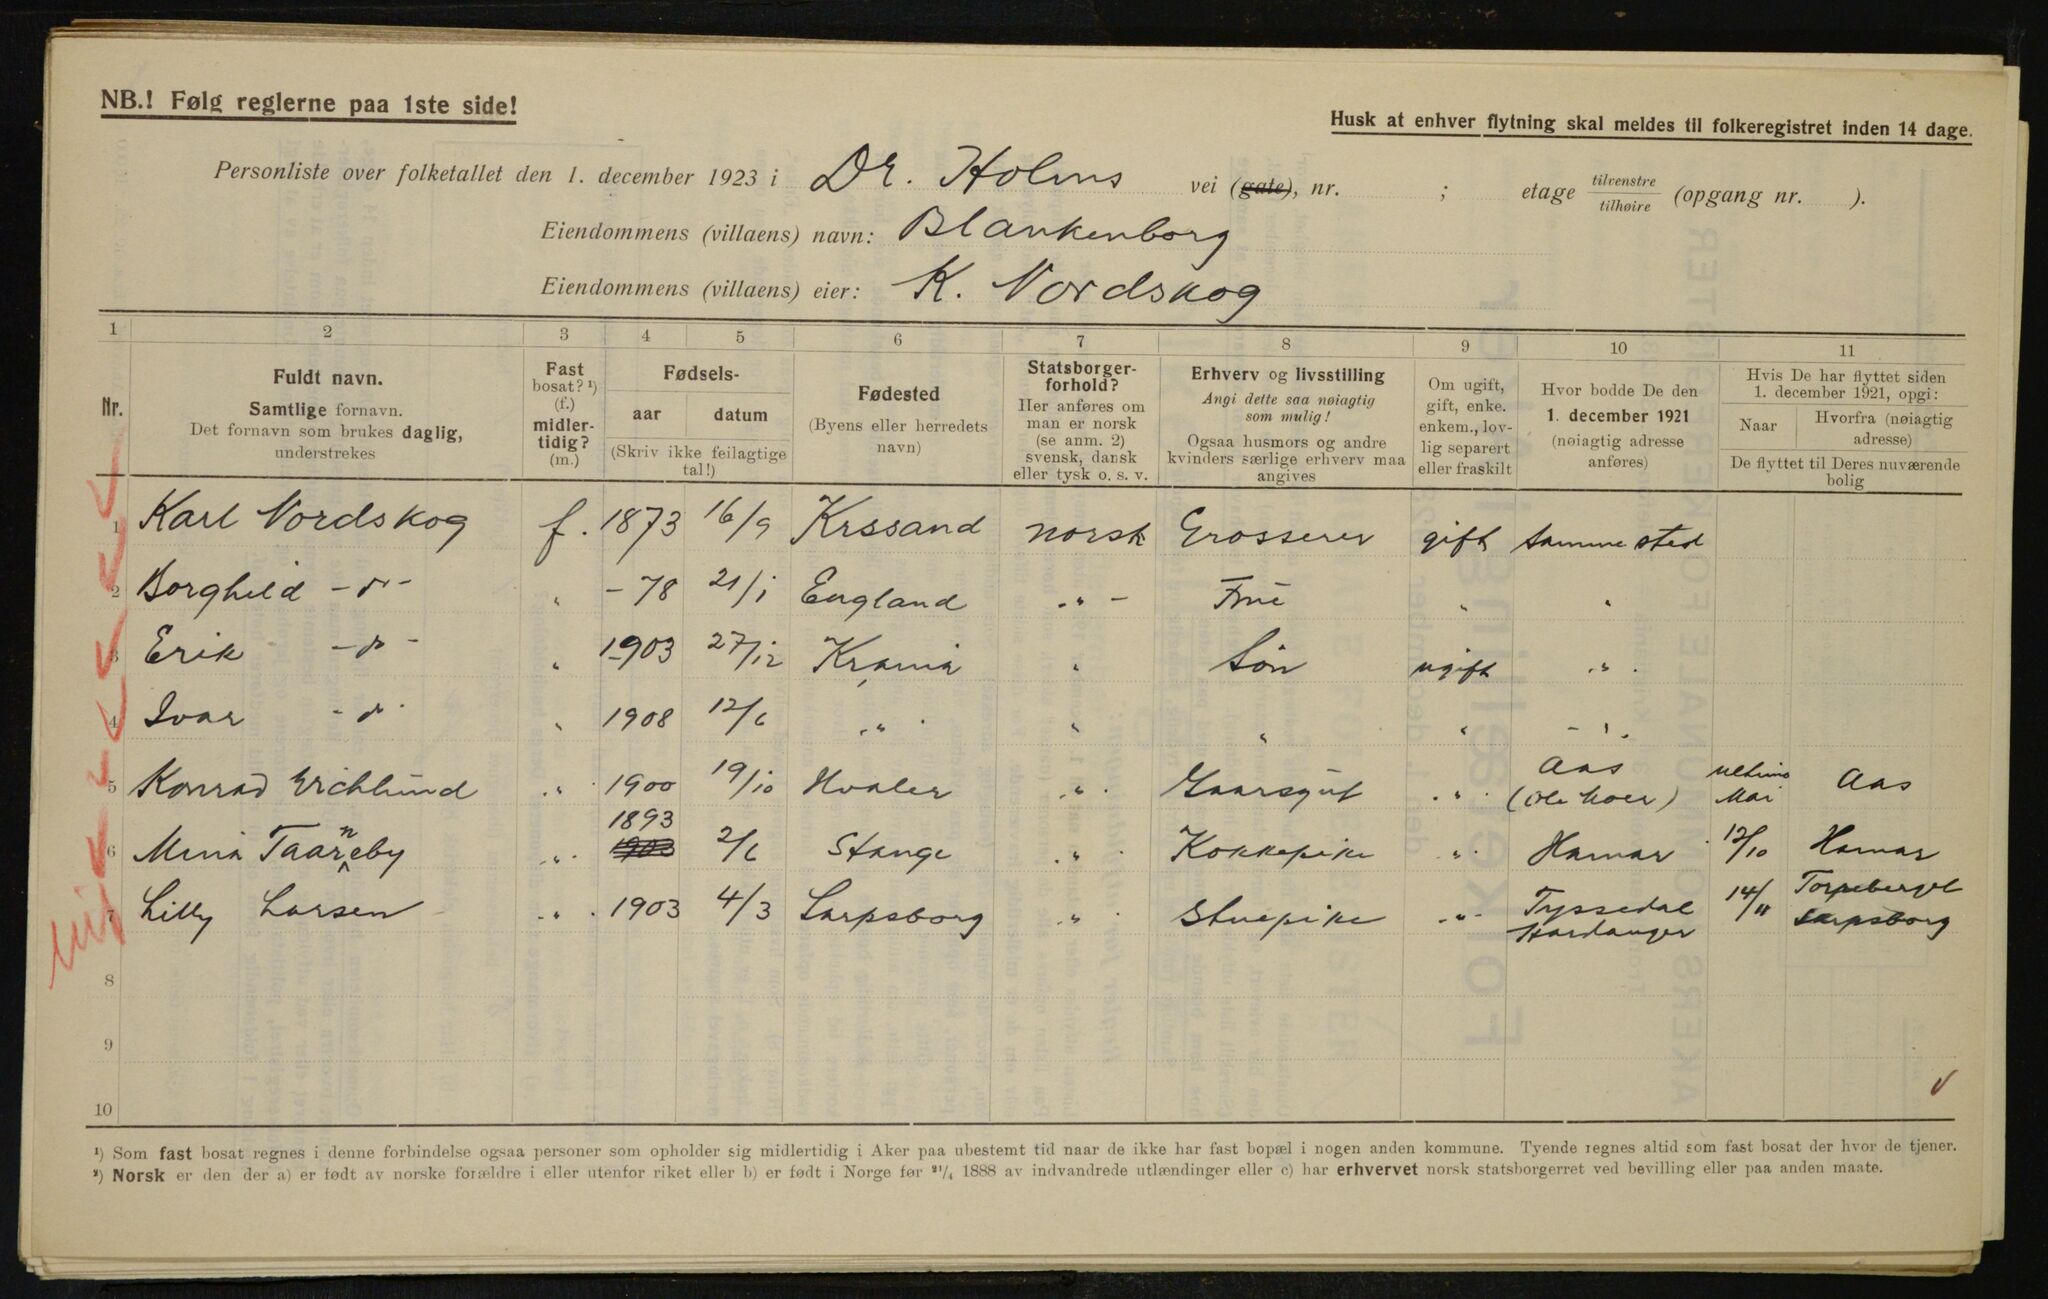 NB.! Følg reglerne paa 1ste side!
Husk at enhver flytning skal meldes til folkeregistret inden 14 dage.
Personliste over folketallet den 1. december 1923 i Dr. Holms vei (gate), nr. ; etage tilvenstre tilhøire (opgang nr. ).
Eiendommens (villaens) navn: Blankenborg
Eiendommens (villaens) eier: K. Nordskog
1 2 3 4 5 6 7 8 9 10 11
Nr.
Fuldt navn.
Samtlige fornavn.
Det fornavn som brukes daglig,
understrekes
Fast
bosat? ¹)
(f.)
midler-
tidig?
(m.)
Fødsels-
aar datum
(Skriv ikke feilagtige
tal!)
Fødested
(Byens eller herredets
navn)
Statsborger-
forhold?
Her anføres om
man er norsk
(se anm. 2)
svensk, dansk
eller tysk o. s. v.
Erhverv og livsstilling
Angi dette saa nøiagtig
som mulig!
Ogsaa husmors og andre
kvinders særlige erhverv maa
angives
Om ugift,
gift, enke.
enkem., lov-
lig separert
eller fraskilt
Hvor bodde De den
1. december 1921
(nøiagtig adresse
anføres)
Hvis De har flyttet siden
1. december 1921, opgi:
Naar Hvorfra (nøiagtig
adresse)
De flyttet til Deres nuværende
bolig
1 Karl Nordskog f. 1873 16/9 Krssand norsk Grosserer gift Samme sted
2 Borghild -d°- " -78 21/1 England -"- Frue " "
3 Erik -d°- " 1903 27/12 Krania " Søn ugift "
4 Ivar -d°- " 1908 12/6 " " " " -"-
5 Konrad Erichlund " 1900 19/10 Hvaler " Gaarsgut " Aas (Ole Moer) ultimo Mai Aas
6 Mina Taarneby " 1893 1903 2/6 Stange " Kokkepike " Hamar 12/10 Hamar
7 Lilly Larsen " 1903 4/3 Sarpsborg " Stuepike " Tyssedal Hardanger 14/11 Sarpsborg
8
9
10
¹) Som fast bosat regnes i denne forbindelse ogsaa personer som opholder sig midlertidig i Aker paa ubestemt tid naar de ikke har fast bopæl i nogen anden kommune. Tyende regnes altid som fast bosat der hvor de tjener.
²) Norsk er den der a) er født av norske forældre i eller utenfor riket eller b) er født i Norge før ²¹/₄ 1888 av indvandrede utlændinger eller c) har erhvervet norsk statsborgerret ved bevilling eller paa anden maate.